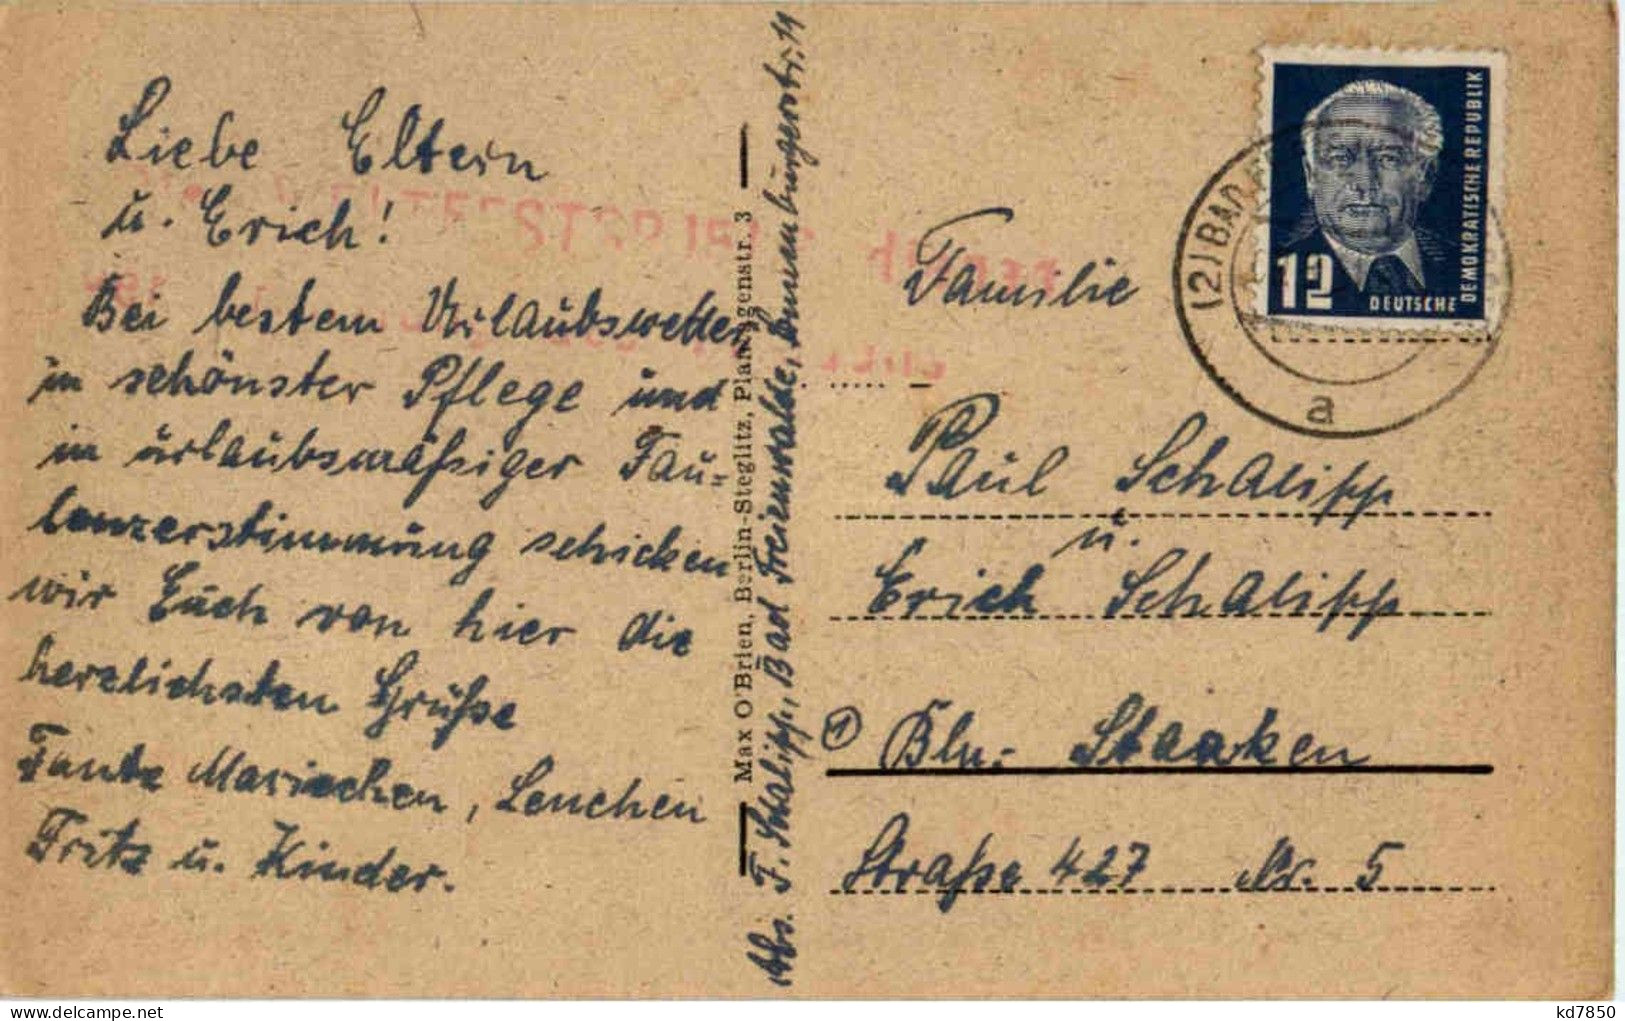 Liebe Eltern
u. Erich!
Bei bestem Urlaubswetter
in schönster Pflege und
in urlaubsmäßiger Fau-
lenzerstimmung schicken
wir Euch von hier die
herzlichsten Grüße
Tante Mariechen, Lenchen
Fritz u. Kinder.
Max O'Brien, Berlin-Steglitz, Plantagenstr. 3
Abs. F. Schalipp, Bad Freienwalde, Sonnenburgerstr. 11
12
DEUTSCHE
DEMOKRATISCHE REPUBLIK
(2) BAD
a
Familie
Paul Schalipp
u.
Erich Schalipp
① Bln.- Staaken
Straße 427 Nr. 5
kd7850